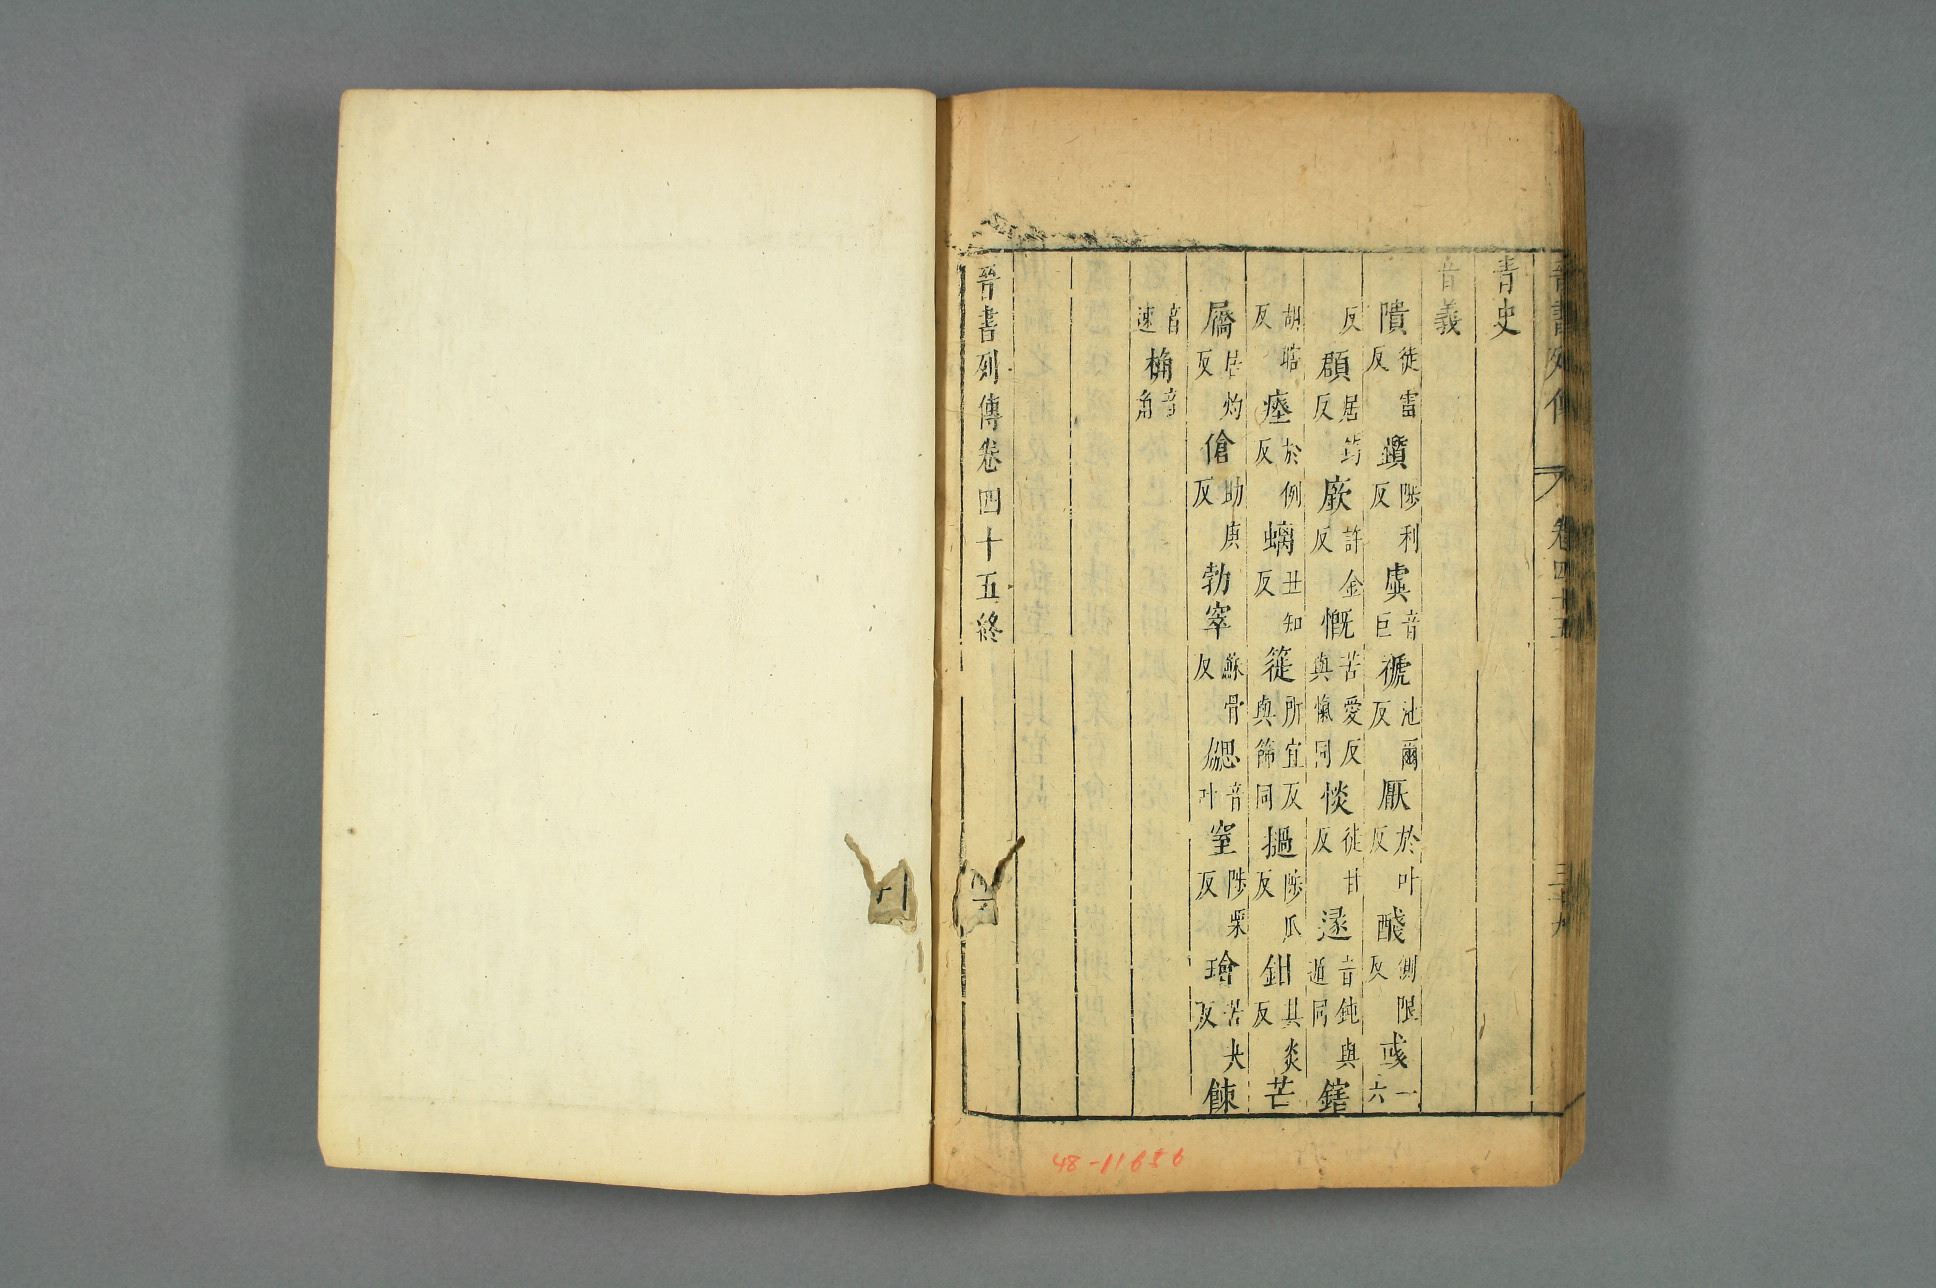 晉書列傳 卷四十五
青史
音義
隤徒雷反 躓陟利反 虡音巨 褫池爾反 厭於叶反 醆側限反 彧一六
反 頵居筠反 廞許金反 慨苦愛反與愾同 惔徒甘反 遯音鈍與遁同 鎋
胡瞎反 瘞於例反 螭丑知反 簁所宜反與篩同 撾陟瓜反 鉗其炎反 芒
屩居灼反 傖助庚反 勃窣蘇骨反 勰音叶 窒陟栗反 璯苦夬反 餗
音速 桷音角
晉書列傳卷四十五終
48-11656